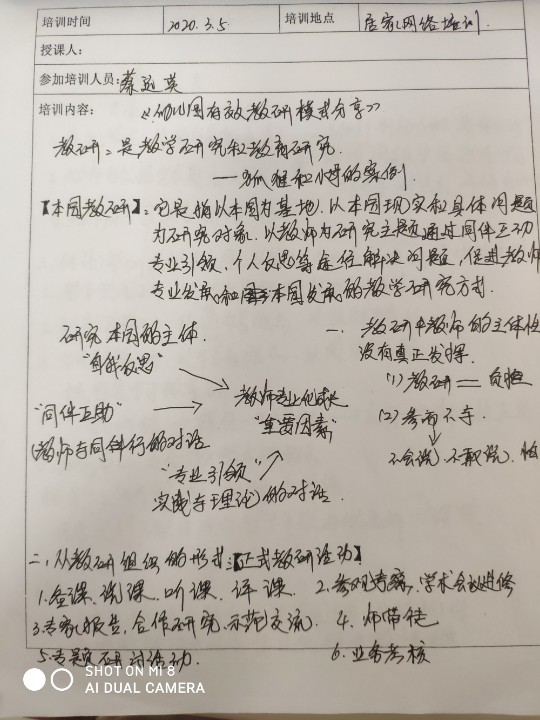 培训时间 2020.3.5 培训地点 居家网络培训
授课人:
参加培训人员: 蔡 英
培训内容: 《幼儿园有效教研模式分享》
教研:是教学研究和教育研究.
——狐狸和小 的案例.
【本园教研】:它是指以本园为基地.以本园现实和具体问题
为研究对象.以教师为研究主题通过同伴互助
专业引领,个人反思等途径解决问题,促进教师
专业发展和本园发展的教学研究方式.
研究本园的主体.
"自我反思"
"同伴互助"
(教师与同伴行的对话
教师专业化成长
"重要因素"
"专业引领"
实践与理论)的对话.
一. 教研中教师的主体性
没有真正发挥.
(1) 教研 == 负担
(2) 参而不与
不会说,不敢说,怕
二,从教研组织的形式:【正式教研活动】
1.备课、说课、听课、评课 2.参观考察,学术会议进修
3.专家报告,合作研究,示范交流. 4.师带徒
5.专题研讨活动. 6.业务考核
SHOT ON MI 8
AI DUAL CAMERA